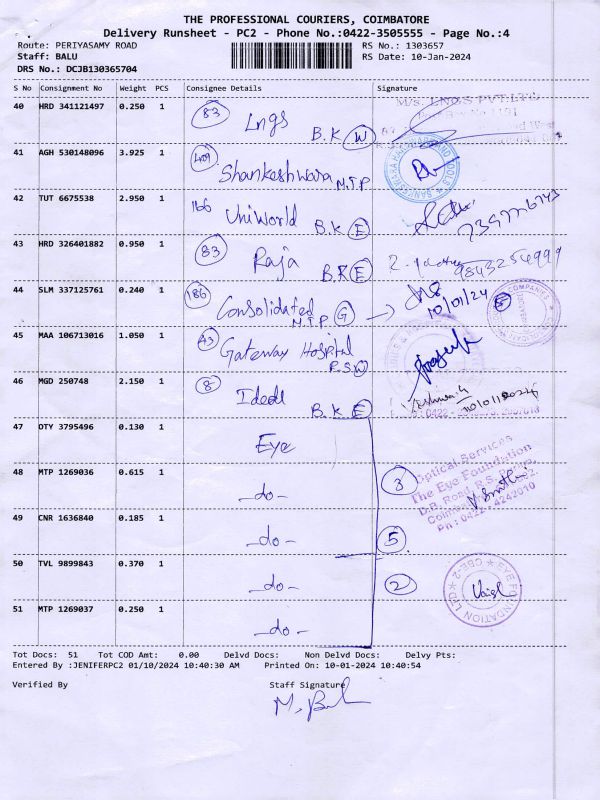 THE PROFESSIONAL COURIERS, COIMBATORE
Delivery Runsheet - PC2 - Phone No.:0422-3505555 - Page No.:4
Route: PERIYASAMY ROAD RS No.: 1303657
Staff: BALU RS Date: 10-Jan-2024
DRS No.: DCJB130365704
S No Consignment No Weight PCS Consignee Details Signature
40 HRD 341121497 0.250 1 83 Lngs B.K W
M/s. LNGS PVT.LTD
41 AGH 530148096 3.925 1 409 Shankeshwara M.T.P
42 TUT 6675538 2.950 1 166 UniWorld B.K E
43 HRD 326401882 0.950 1 83 Raja B.K E 9843254999
44 SLM 337125761 0.240 1 186 Consolidated M.T.P G 10/01/24
45 MAA 106713016 1.050 1 43 Gateway Hospital R.S.W
46 MGD 250748 2.150 1 8 Ideal B.K E
47 OTY 3795496 0.130 1 Eye
48 MTP 1269036 0.615 1 -do- 3
Optical Services
The Eye Foundation
D.B. Road, R.S. Puram,
Ph: 0422-4242010
49 CNR 1636840 0.185 1 -do- 5
50 TVL 9899843 0.370 1 -do- 2
EYE FOUNDATION LTD CBE-2
51 MTP 1269037 0.250 1 -do-
Tot Docs: 51 Tot COD Amt: 0.00 Delvd Docs: Non Delvd Docs: Delvy Pts:
Entered By :JENIFERPC2 01/10/2024 10:40:30 AM Printed On: 10-01-2024 10:40:54
Verified By Staff Signature